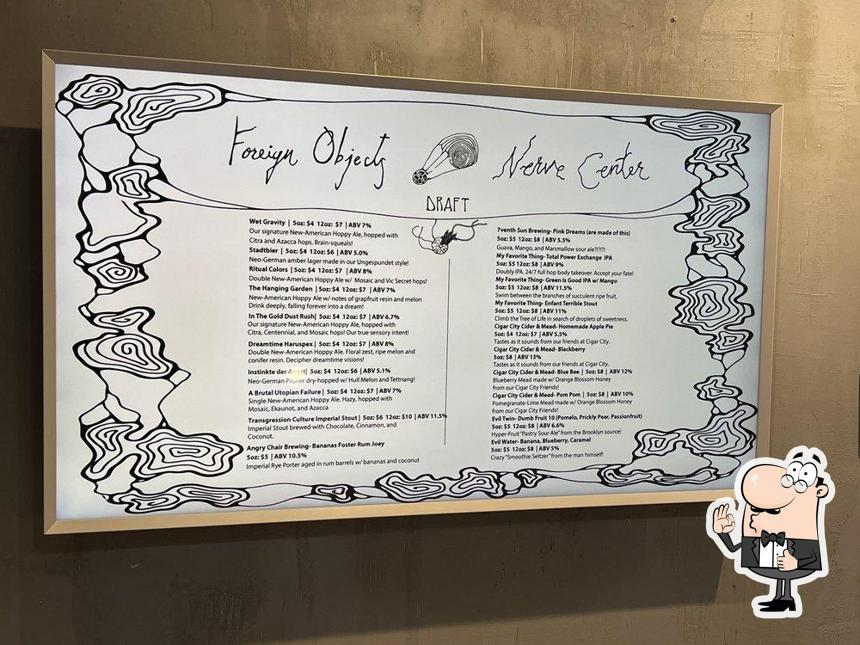 Foreign Objects
Nerve Center
DRAFT
Wet Gravity | 5oz: $4 12oz: $7 | ABV 7%
Our signature New-American Hoppy Ale, hopped with
Citra and Azacca hops. Brain-squeals!
Stadtbier | 5oz: $4 12oz: $6 | ABV 5.0%
Neo-German amber lager made in our Ungespundet style!
Ritual Colors | 5oz: $4 12oz: $7 | ABV 8%
Double New-American Hoppy Ale w/ Mosaic and Vic Secret hops!
The Hanging Garden | 5oz: $4 12oz: $7 | ABV 7%
New-American Hoppy Ale w/ notes of grapfruit resin and melon
Drink deeply, falling forever into a dream!
In The Gold Dust Rush| 5oz: $4 12oz: $7 | ABV 6.7%
Our signature New-American Hoppy Ale, hopped with
Citra, Centennial, and Mosaic hops! Our true sensory intent!
Dreamtime Haruspex | 5oz: $4 12oz: $7 | ABV 8%
Double New-American Hoppy Ale. Floral zest, ripe melon and
conifer resin. Decipher dreamtime visions!
Instinkte der Angst| 5oz: $4 12oz: $6 | ABV 5.1%
Neo-German Pilsner dry-hopped w/ Hull Melon and Tettnang!
A Brutal Utopian Failure | 5oz: $4 12oz: $7 | ABV 7%
Single New-American Hoppy Ale. Hazy, hopped with
Mosaic, Ekaunot, and Azacca
Transgression Culture Imperial Stout | 5oz: $6 12oz: $10 | ABV 11.5%
Imperial Stout brewed with Chocolate, Cinnamon, and
Coconut.
Angry Chair Brewing- Bananas Foster Rum Joey
5oz: $5 | ABV 10.5%
Imperial Rye Porter aged in rum barrels w/ bananas and coconut
7venth Sun Brewing- Pink Dreams (are made of this)
5oz: $5 12oz: $8 | ABV 5.5%
Guava, Mango, and Marsmallow sour ale?!?!?!
My Favorite Thing- Total Power Exchange IPA
5oz: $5 12oz: $8 | ABV 9%
Doubly IPA. 24/7 full hop body takeover. Accept your fate!
My Favorite Thing- Green Is Good IPA w/ Mango
5oz: $5 12oz: $8 | ABV 11.5%
Swim between the branches of succulent ripe fruit.
My Favorite Thing- Enfant Terrible Stout
5oz: $5 12oz: $8 | ABV 11%
Climb the Tree of Life in search of droplets of sweetness.
Cigar City Cider & Mead- Homemade Apple Pie
5oz: $4 12oz: $7 | ABV 5.5%
Tastes as it sounds from our friends at Cigar City.
Cigar City Cider & Mead- Blackberry
5oz: $8 | ABV 13%
Tastes as it sounds from our friends at Cigar City.
Cigar City Cider & Mead- Blue Bee | 5oz: $8 | ABV 12%
Blueberry Mead made w/ Orange Blossom Honey
from our Cigar City Friends!
Cigar City Cider & Mead- Pom Pom | 5oz: $8 | ABV 10%
Pomegranate-Lime Mead made w/ Orange Blossom Honey
from our Cigar City Friends!
Evil Twin- Dumb Fruit 10 (Pomelo, Prickly Pear, Passionfruit)
5oz: $5 12oz: $8 | ABV 6.6%
Hyper-Fruit "Pastry Sour Ale" from the Brooklyn source!
Evil Water- Banana, Blueberry, Caramel
5oz: $5 12oz: $8 | ABV 5%
Crazy "Smoothie Seltzer" from the man himself!